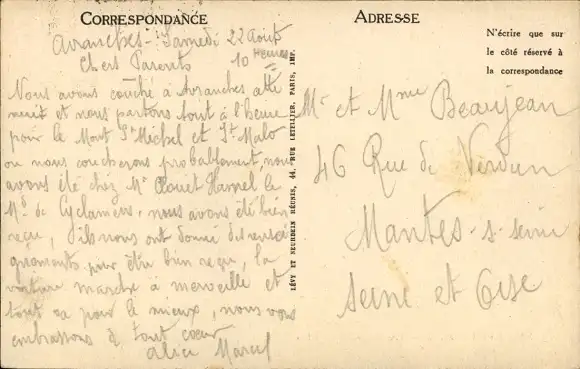 CORRESPONDANCE
Avranches - Samedi 22 Août
Chers Parents 10 heures
Nous avons couché à Avranches cette
nuit et nous partons tout à l'heure
pour le Mont St Michel et St Malo
ou nous coucherons probablement, nous
avons été chez Mr Hamel le
Md de Cyclamens, nous avons été bien
reçu, ils nous ont donné des rensei
gnements pour être bien reçu, la
voiture marche à merveille et
tout va pour le mieux, nous vous
embrassons de tout coeur
Alice Marcel
LÉVY ET NEURDEIN RÉUNIS, 44, RUE LETELLIER, PARIS, IMP.
ADRESSE
N'écrire que sur
le côté réservé à
la correspondance
Mr et Mme Beaujean
46 Rue de Verdun
Mantes-s-seine
Seine et Oise